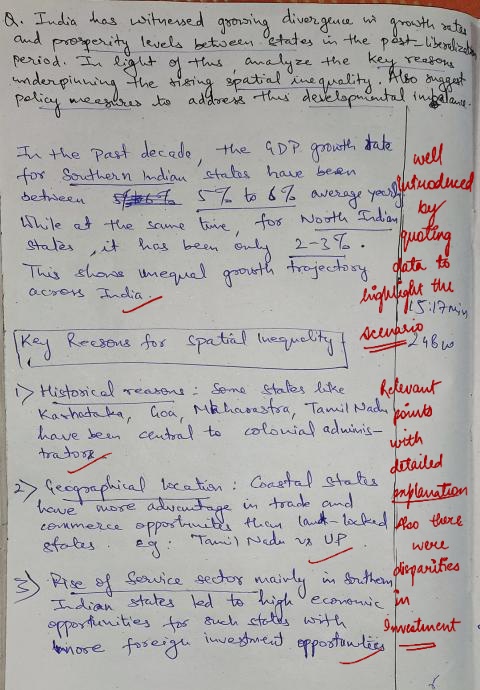 Q. India has witnessed growing divergence in growth rates
and prosperity levels between states in the post-liberalization
period. In light of this, analyze the key reasons
underpinning the rising spatial inequality. Also suggest
policy measures to address this developmental imbalance.
In the past decade, the GDP growth rate
for Southern Indian states have been
between 5% to 6% average yearly
While at the same time, for North Indian
states, it has been only 2-3%.
This shows unequal growth trajectory
across India.
well
introduced
by
quoting
data to
highlight the
scenario
15:17 min
248 w
Key Reasons for Spatial Inequality
1) Historical reasons: Some states like
Karnataka, Goa, Maharastra, Tamil Nadu
have been central to colonial adminis-
trators
2) Geographical location: Coastal states
have more advantage in trade and
commerce opportunites than land-locked
states. eg. Tamil Nadu vs UP.
3) Rise of Service sector mainly in southern
Indian states led to high economic
opportunities for such states with
more foreign investment opportunities
Relevant
points
with
detailed
explanation
Also there
were
disparities
in
Investment